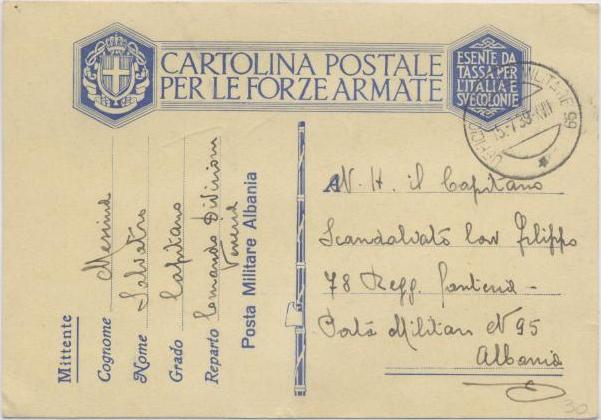 CARTOLINA POSTALE
PER LE FORZE ARMATE
ESENTE DA
TASSA PER
L'ITALIA E
SUE COLONIE
MILITARE 99
15.7.39.XVII
N. H. il Capitano
Scandalvato Cav Filippo
78 Regg. Fanteria -
Posta Militare N 95
Albania
Mittente
Cognome Messina
Nome Salvatore
Grado Capitano
Reparto Comando Divisione
Venezia
Posta Militare Albania
30